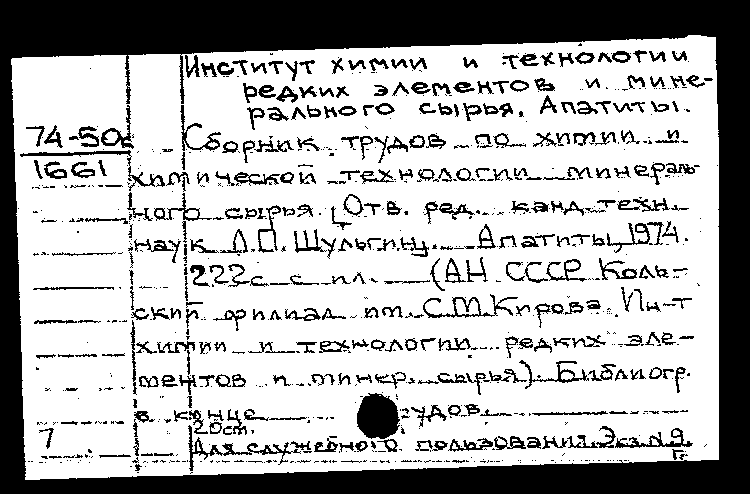 Институт химии и технологии
редких элементов и мине-
рального сырья. Апатиты.
74-50с
1661
Сборник трудов по химии и
химической технологии минераль-
ного сырья. [Отв. ред. канд. техн.
наук Л.П. Шульгин]. Апатиты, 1974.
222с с ил. (АН СССР Коль-
ский филиал им. С.М.Кирова. Ин-т
химии и технологии редких эле-
ментов и минер. сырья). Библиогр.
в конце трудов.
20см.
7 Для служебного пользования. Экз. № 9.